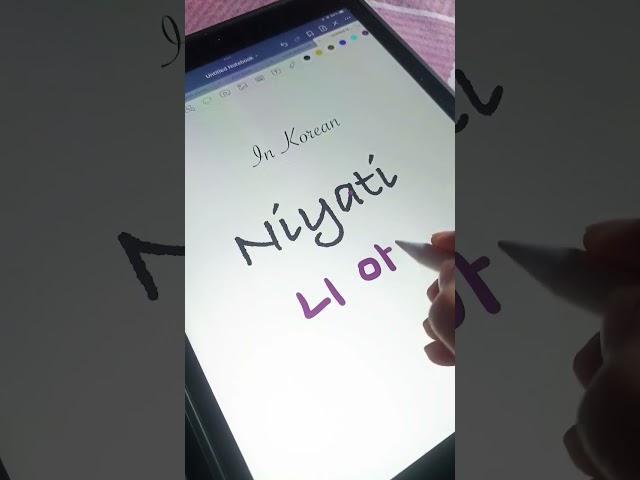 Untitled Notebook
In Korean
Niyati
니 아